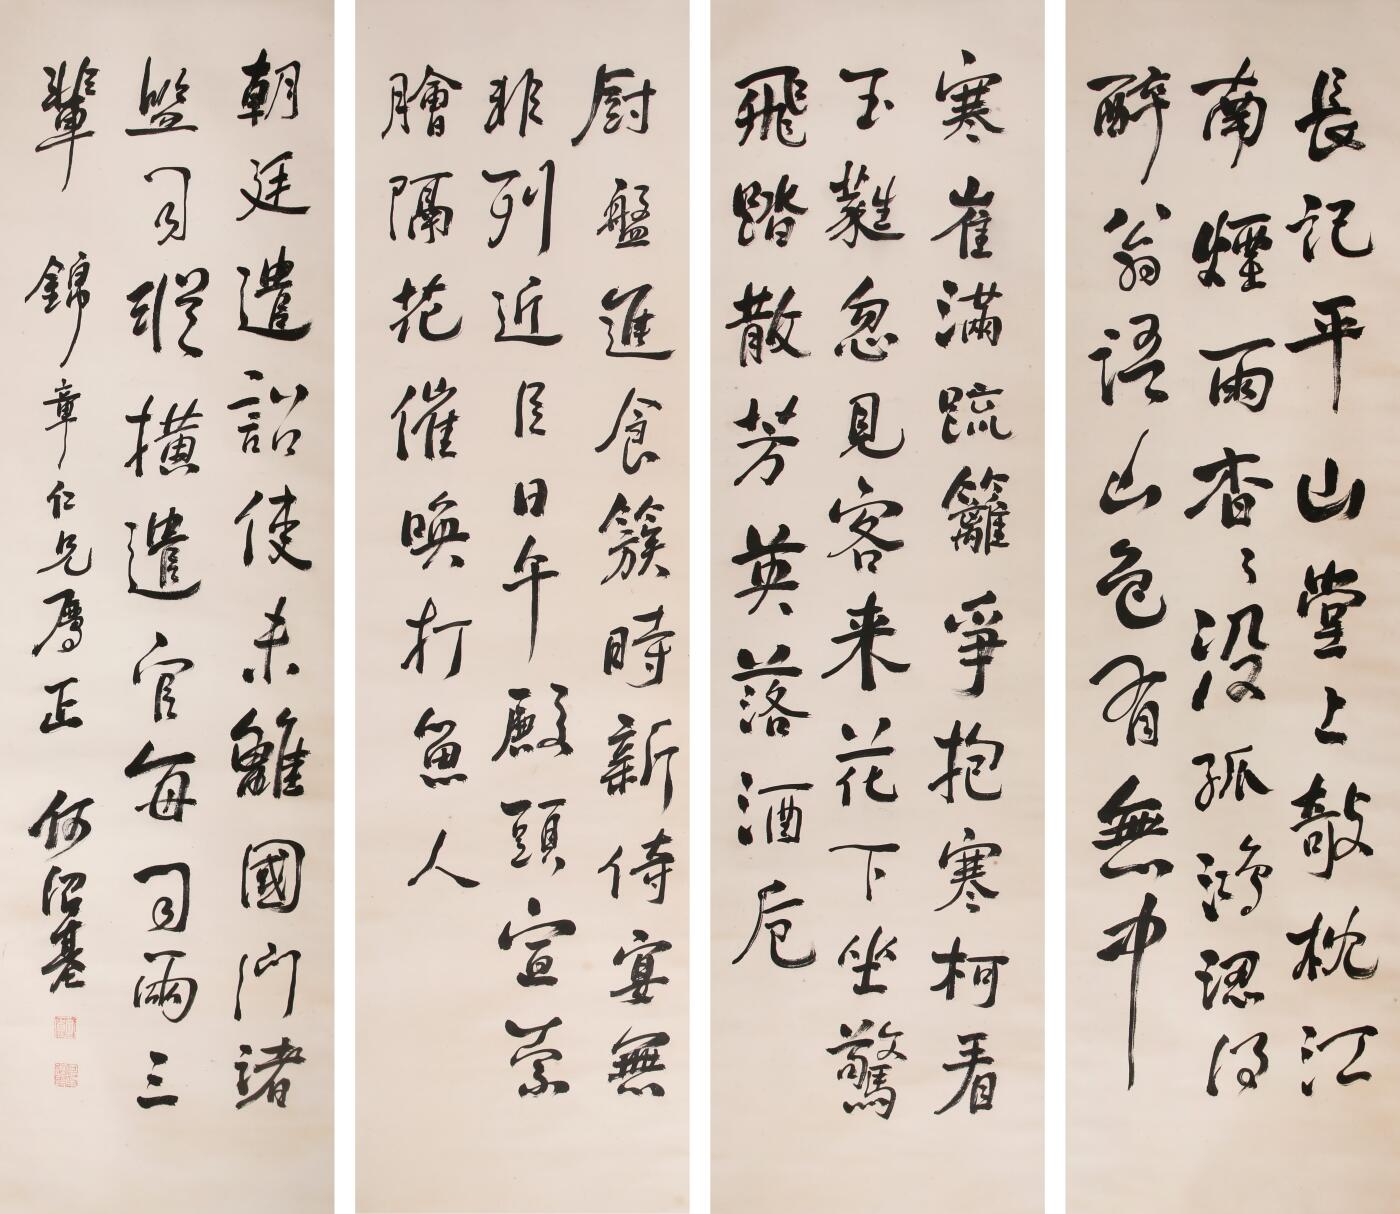 長記平山堂上敧枕江
南煙雨杳〻沒孤鴻認得
醉翁語山色有無中
寒雀滿疏籬爭抱寒柯看
玉蕤忽見客来花下坐驚
飛踏散芳英落酒卮
廚盤進食簇時新侍宴無
非列近臣日午殿頭宣索
膾隔花催喚打魚人
朝廷遣詔使未離國門諸
監司聪橫遣官每司兩三
輩 錦章仁兄属正 何紹基